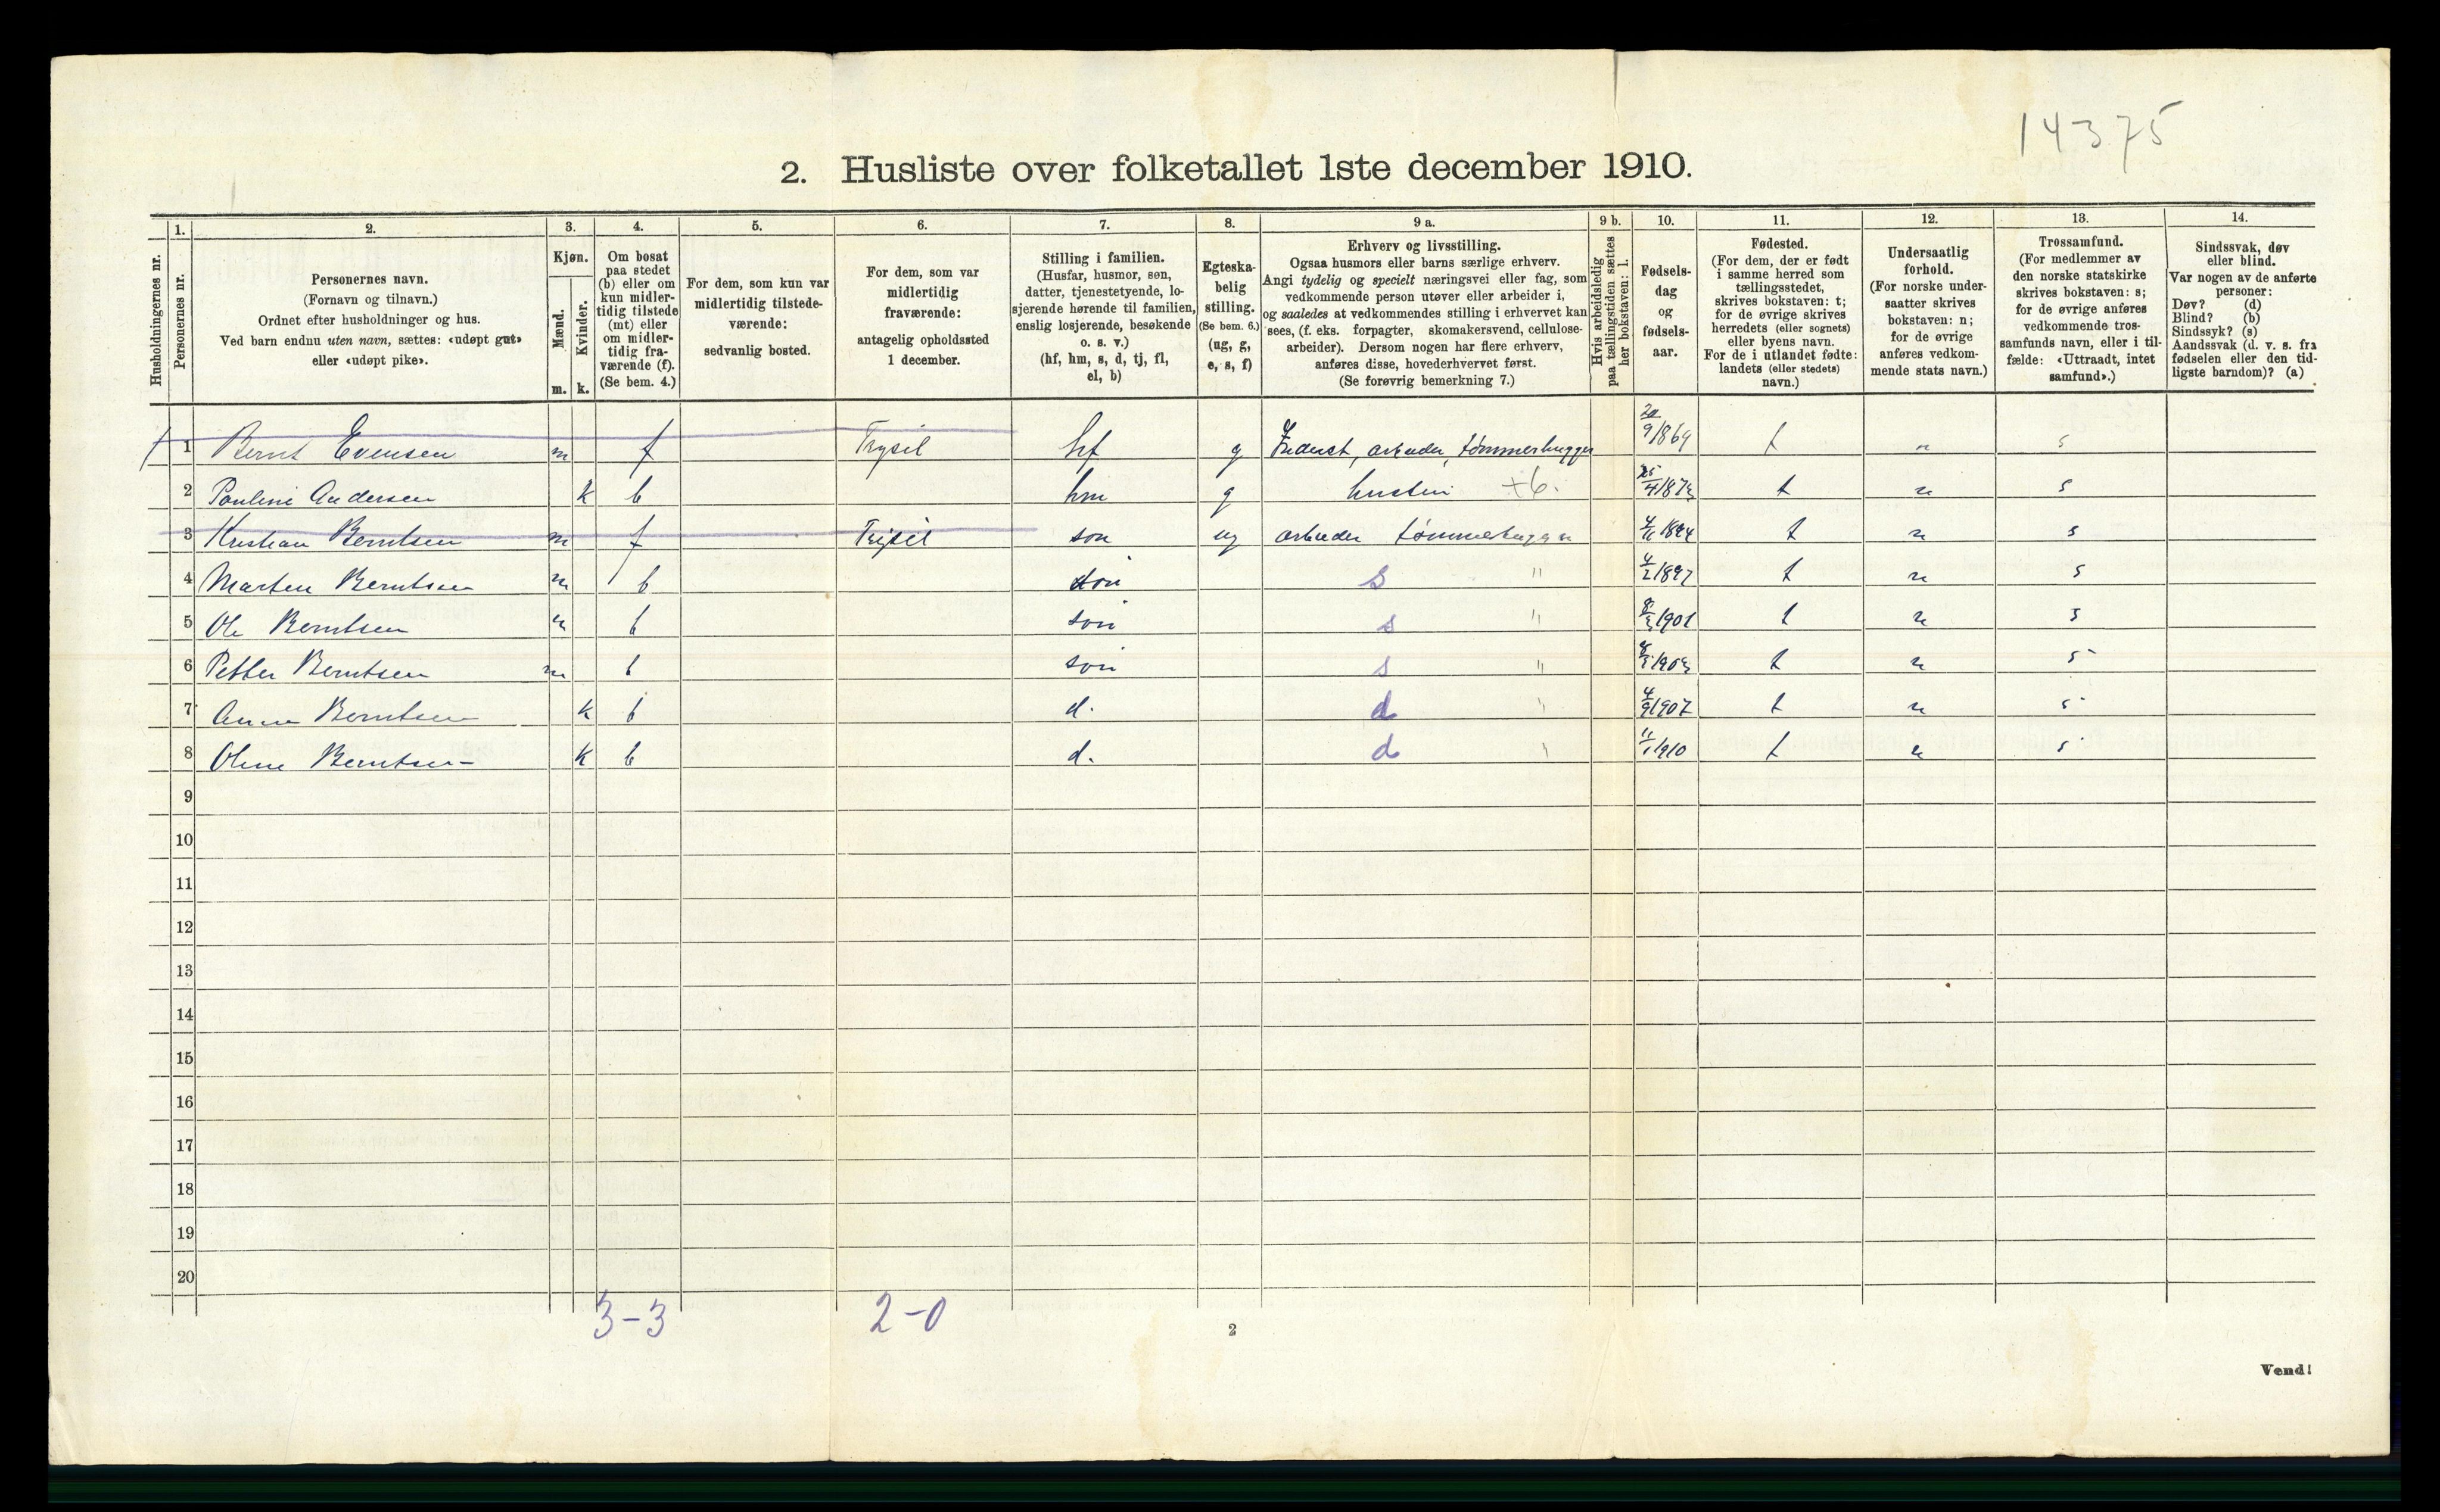 14375
2. Husliste over folketallet 1ste december 1910.
1. 2. 3. 4. 5. 6. 7. 8. 9 a. 9 b. 10. 11. 12. 13. 14.
Husholdningernes nr.
Personernes nr.
Personernes navn.
(Fornavn og tilnavn.)
Ordnet efter husholdninger og hus.
Ved barn endnu uten navn, sættes: «udøpt gut»
eller «udøpt pike».
Kjøn.
Mænd.
Kvinder.
m. k.
Om bosat
paa stedet
(b) eller om
kun midler-
tidig tilstede
(mt) eller
om midler-
tidig fra-
værende (f).
(Se bem. 4.)
For dem, som kun var
midlertidig tilstede-
værende:
sedvanlig bosted.
For dem, som var
midlertidig
fraværende:
antagelig opholdssted
1 december.
Stilling i familien.
(Husfar, husmor, søn,
datter, tjenestetyende, lo-
sjerende hørende til familien,
enslig losjerende, besøkende
o. s. v.)
(hf, hm, s, d, tj, fl,
el, b)
Egteska-
belig
stilling.
(Se bem. 6.)
(ug, g,
e, s, f)
Erhverv og livsstilling.
Ogsaa husmors eller barns særlige erhverv.
Angi tydelig og specielt næringsvei eller fag, som
vedkommende person utøver eller arbeider i,
og saaledes at vedkommendes stilling i erhvervet kan
sees, (f. eks. forpagter, skomakersvend, cellulose-
arbeider). Dersom nogen har flere erhverv,
anføres disse, hovederhvervet først.
(Se forøvrig bemerkning 7.)
Hvis arbeidsledig
paa tællingstiden sættes
her bokstaven: l.
Fødsels-
dag
og
fødsels-
aar.
Fødested.
(For dem, der er født
i samme herred som
tællingsstedet,
skrives bokstaven: t;
for de øvrige skrives
herredets (eller sognets)
eller byens navn.
For de i utlandet fødte:
landets (eller stedets)
navn.)
Undersaatlig
forhold.
(For norske under-
saatter skrives
bokstaven: n;
for de øvrige
anføres vedkom-
mende stats navn.)
Trossamfund.
(For medlemmer av
den norske statskirke
skrives bokstaven: s;
for de øvrige anføres
vedkommende tros-
samfunds navn, eller i til-
fælde: «Uttraadt, intet
samfund».)
Sindssvak, døv
eller blind.
Var nogen av de anførte
personer:
Døv? (d)
Blind? (b)
Sindssyk? (s)
Aandssvak (d. v. s. fra
fødselen eller den tid-
ligste barndom)? (a)
1 Bernt Evensen m f Trysil hf g Inderst, arbeider, tømmerhugger 20/9 1869 t n s
2 Pauline Andersen k b hm g hustru +6. t n s
3 Kristian Berntsen m f Trysil søn ug arbeider tømmerhugger t n s
4 Marten Berntsen m b søn s " 4/2 1897 t n s
5 Ole Berntsen m b søn s " 1901 t n s
6 Petter Berntsen m b søn s " t n s
7 Anna Berntsen k b d. d " 4/9 1907 t n s
8 Oline Berntsen k b d. d " 11/1 1910 t n s
9
10
11
12
13
14
15
16
17
18
19
20
3-3 2-0
2
Vend!